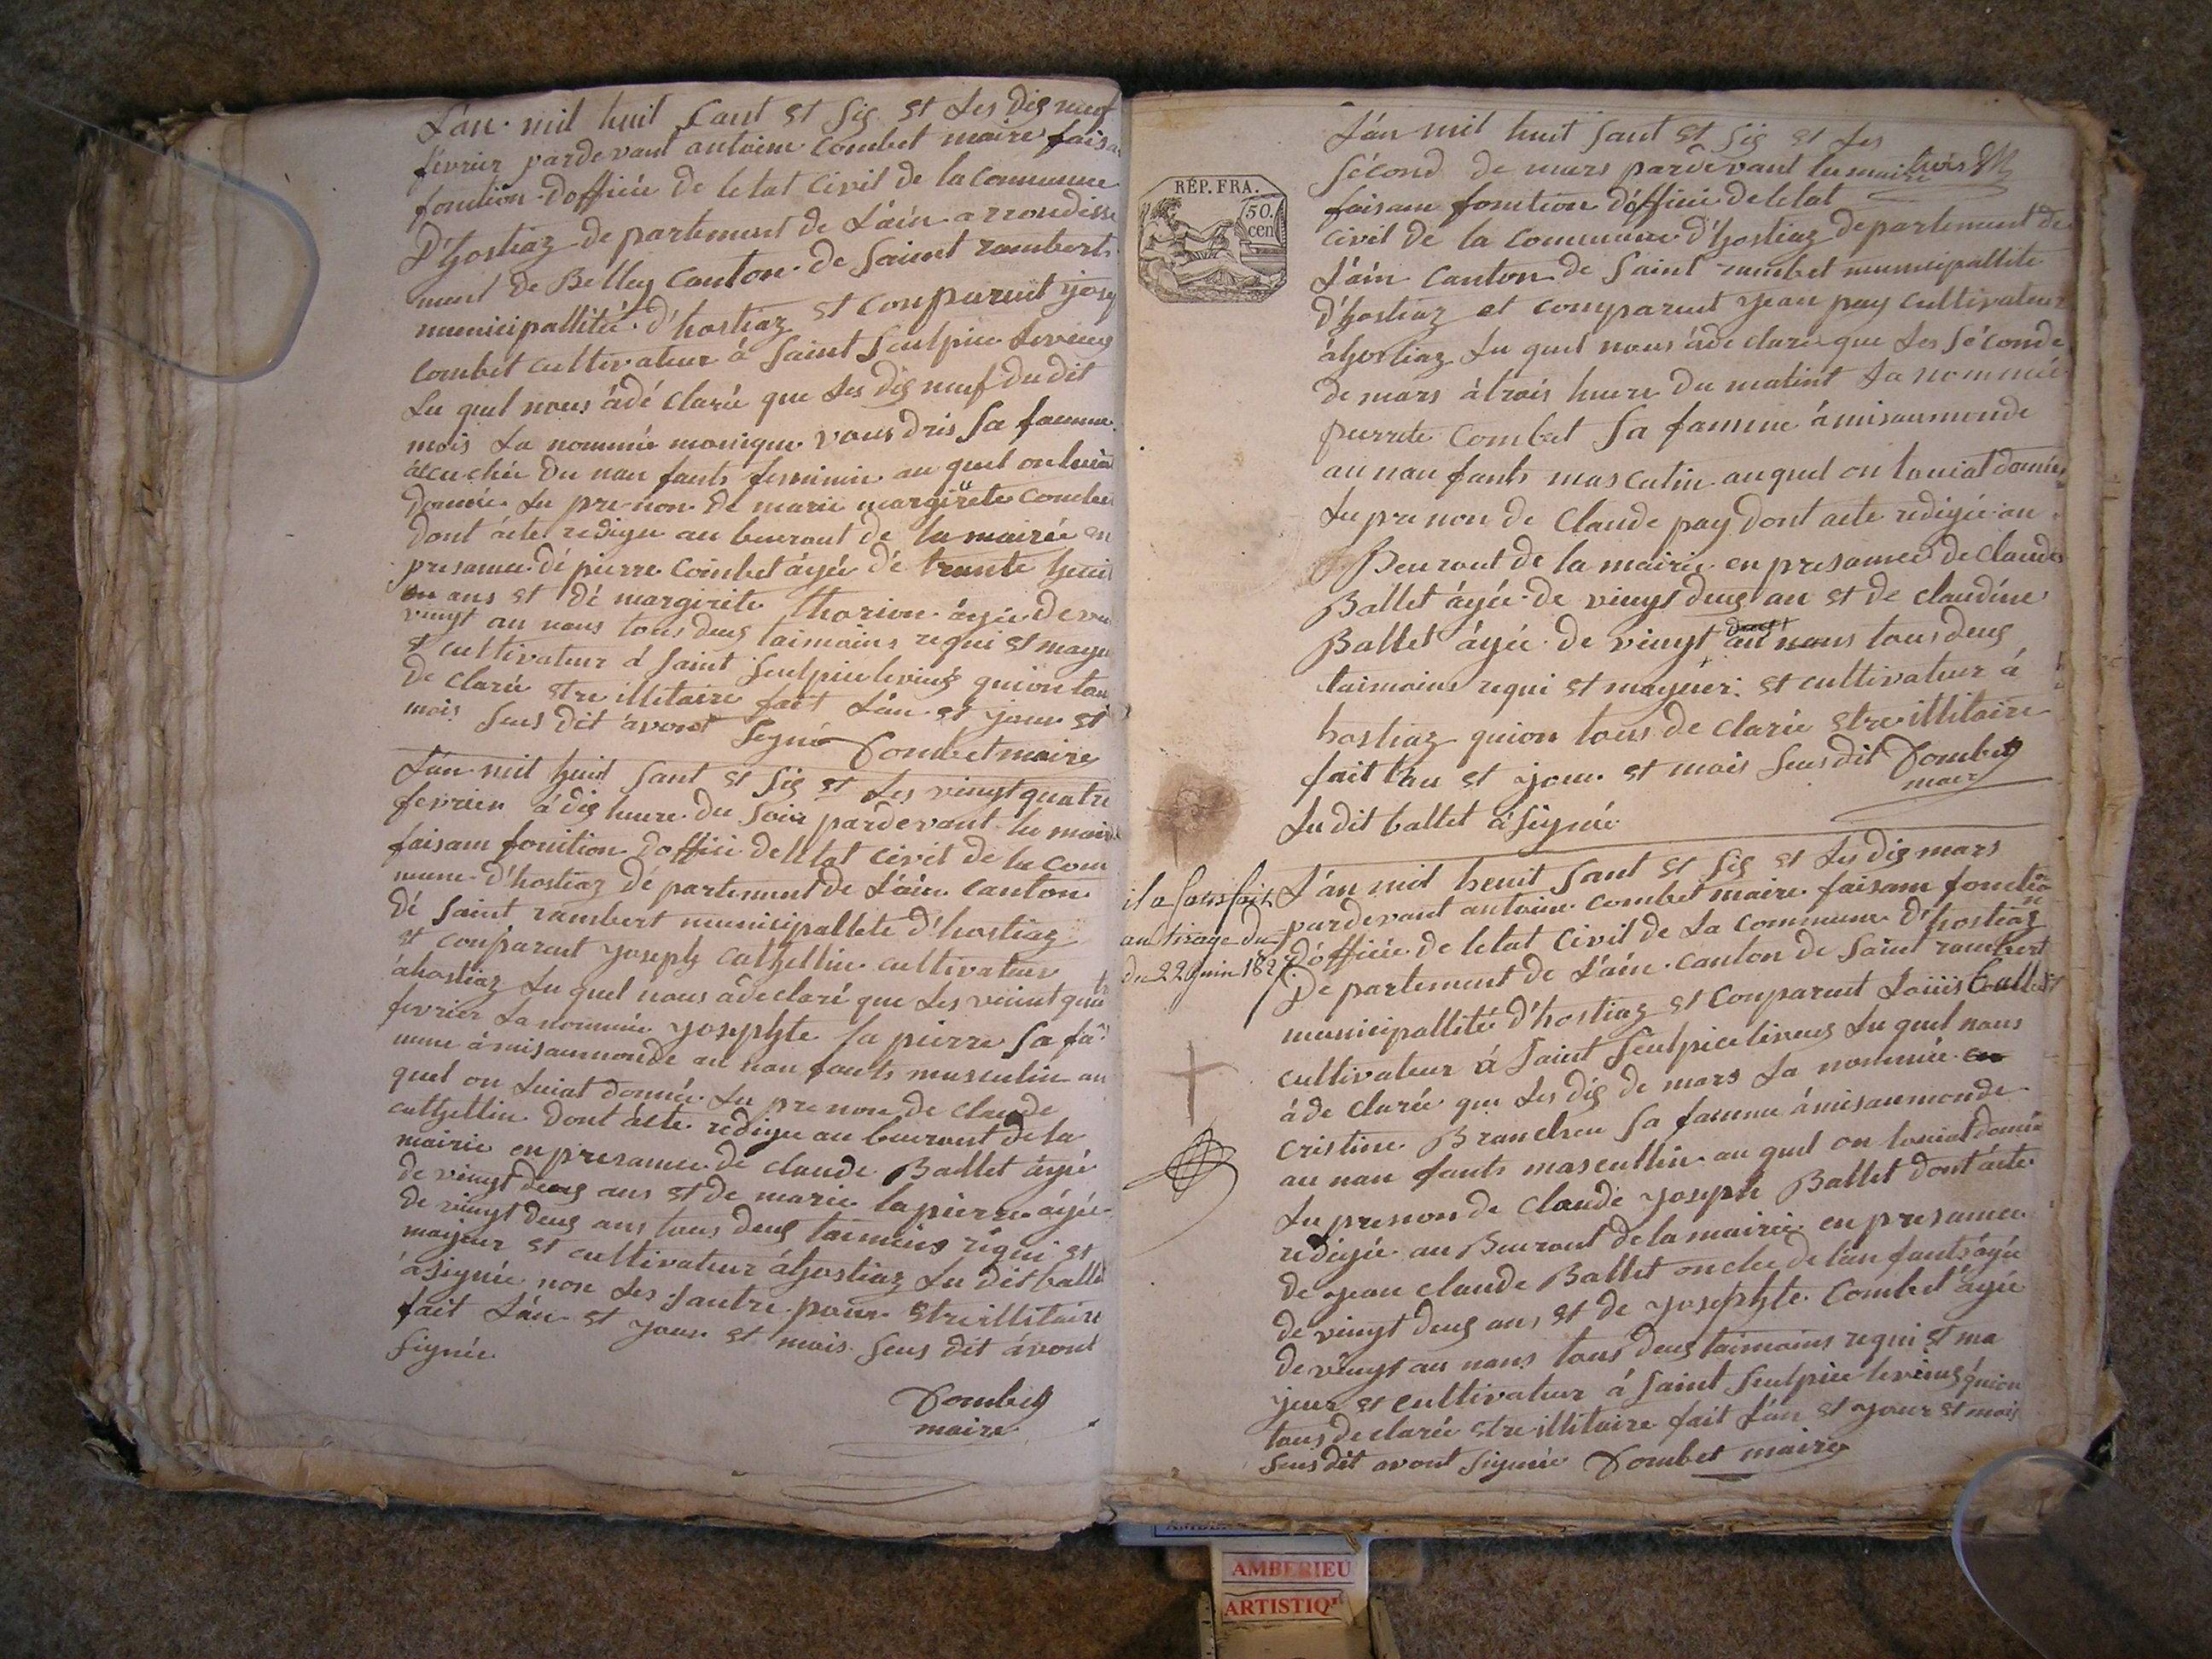 L'án mil huit Sant et Sig et Les dig neuf
février pardevant antoine Combet maire faisa
fonction d'officié de letat Civil de la Commune
D'hostiaz departement de L'ain arrondisse
ment de Belley Canton de Saint rambert
municipallitéé d'hostiaz et Comparuit yosep
Combet cultivateur à Saint Sculpice levieug
Lu quel nous ádé clarée que Les dig neuf du dit
mois La nommée monique vous dris Sa famme
accuchée du nan fants feminin au quel on luia
donnée Lu pre non de marie margirëte Combet
dont ácte redigee au beuraut de la mairée en
presance dé pierre Combet áyée dé trante heuit
ans et dé margirite thorion áyée de
vingt an nous tous deug taimoins requi et mayu
et cultivateur á Saint Sculpice levieug quion tous
de clarée etre illitaire fait L'án et jour et
mois Sus dit avont Segné Combet maire
L'án mil huit Sant et Sig et Les vingt quatre
fevrien á dig heure du Soir pardevant lu maire
faisam fonition d'offici de letat Civil de la Com
mune d'hostiaz dé partement de L'áin Canton
dé Saint rambert municipallete d'hostiaz
et conparuit yoseph Cathellin cultivateur
áhostiaz Lu quel nous ádeclaré que Les veint quatr
fevrier La nommée yosephte la pierre Sa fa
mme ámisaumonde au nan fants musculin au
quel on Luiat donnée Lu pre non de Claude
cathellin Dont ácte redigee au beuraut de la
mairie en presance de claude Ballet áyée
de vingt deug ans et de marie lapierre áyée
de vingt deug ans tous deug taimins rêqui et
mayeur et cultivateur áhostiaz Lu dit ballet
á Signée non Les Sautre pour etre illitaire
fait L'án et jour et mois Sus dit ávont
Signée
Combet
maire
RÉP. FRA.
50.
cen
L'án mil huit Sant et Sig et Les
Sécond de mars pardevant lu maire trois
faisam fonition d'officié de letat
Civil de la Commune d'hostiaz departement de
L'áin Canton de Saint rambet municipallite
d'hostiaz et comparuit yean pay Cultivateur
áhostiaz Lu quel nous áde claré que Les Séconde
de mars átrois heure du matint La nommée
perrete Combet Sa famme ámisaumonde
au nan fants masculin auquel on louiat donnée
Lu pre non de Claude pay dont acte redigée au
Beuraut de la mairie en presance de Claude
Ballet áyée de vingt deug an et de claudine
Ballet áyée de vingt an nous tous deug
taimoins requi et mayeur et cultivateur á
hostiaz quion tous de clarée etre illitaire
fait l'an et jour et mois Sus dit Combet
maire
Lu dit ballet á Signée
il a Satisfait
au tirage du
du 22 Juin 182
L'án mil heuit Sant et Sig et Les dig mars
pardevant antoine Combet maire faisam fonction
d'officiée de letat Civil de La Commune d'hostiaz
De partement de L'áin Canton de Saint rambert
municipallitée d'hostiaz et Comparuit Loüis Ballet
cultivateur á Saint Sculpice levieug Lu quel nous
áde clarée que Les dig de mars La nommée
Cristine Brandreu Sa famme ámisaumonde
au nan fants mascullin au quel on louiat donnée
Lu prenon de Claude yoseph Ballet dont ácte
redigée au Beuraut de la mairie en presance
de yean claude Ballet oncle de l'an fants áyée
de vingt deug an, et de yosephte Combet áyée
de vingt an nous tous deug taimoins requi et ma
yeur et cultivateur á Saint Sculpice levieug quion
tous declarée etre illitaire fait L'án et your et mois
Sus dit avont Signée Combet maire
AMBERIEU
ARTISTIQ